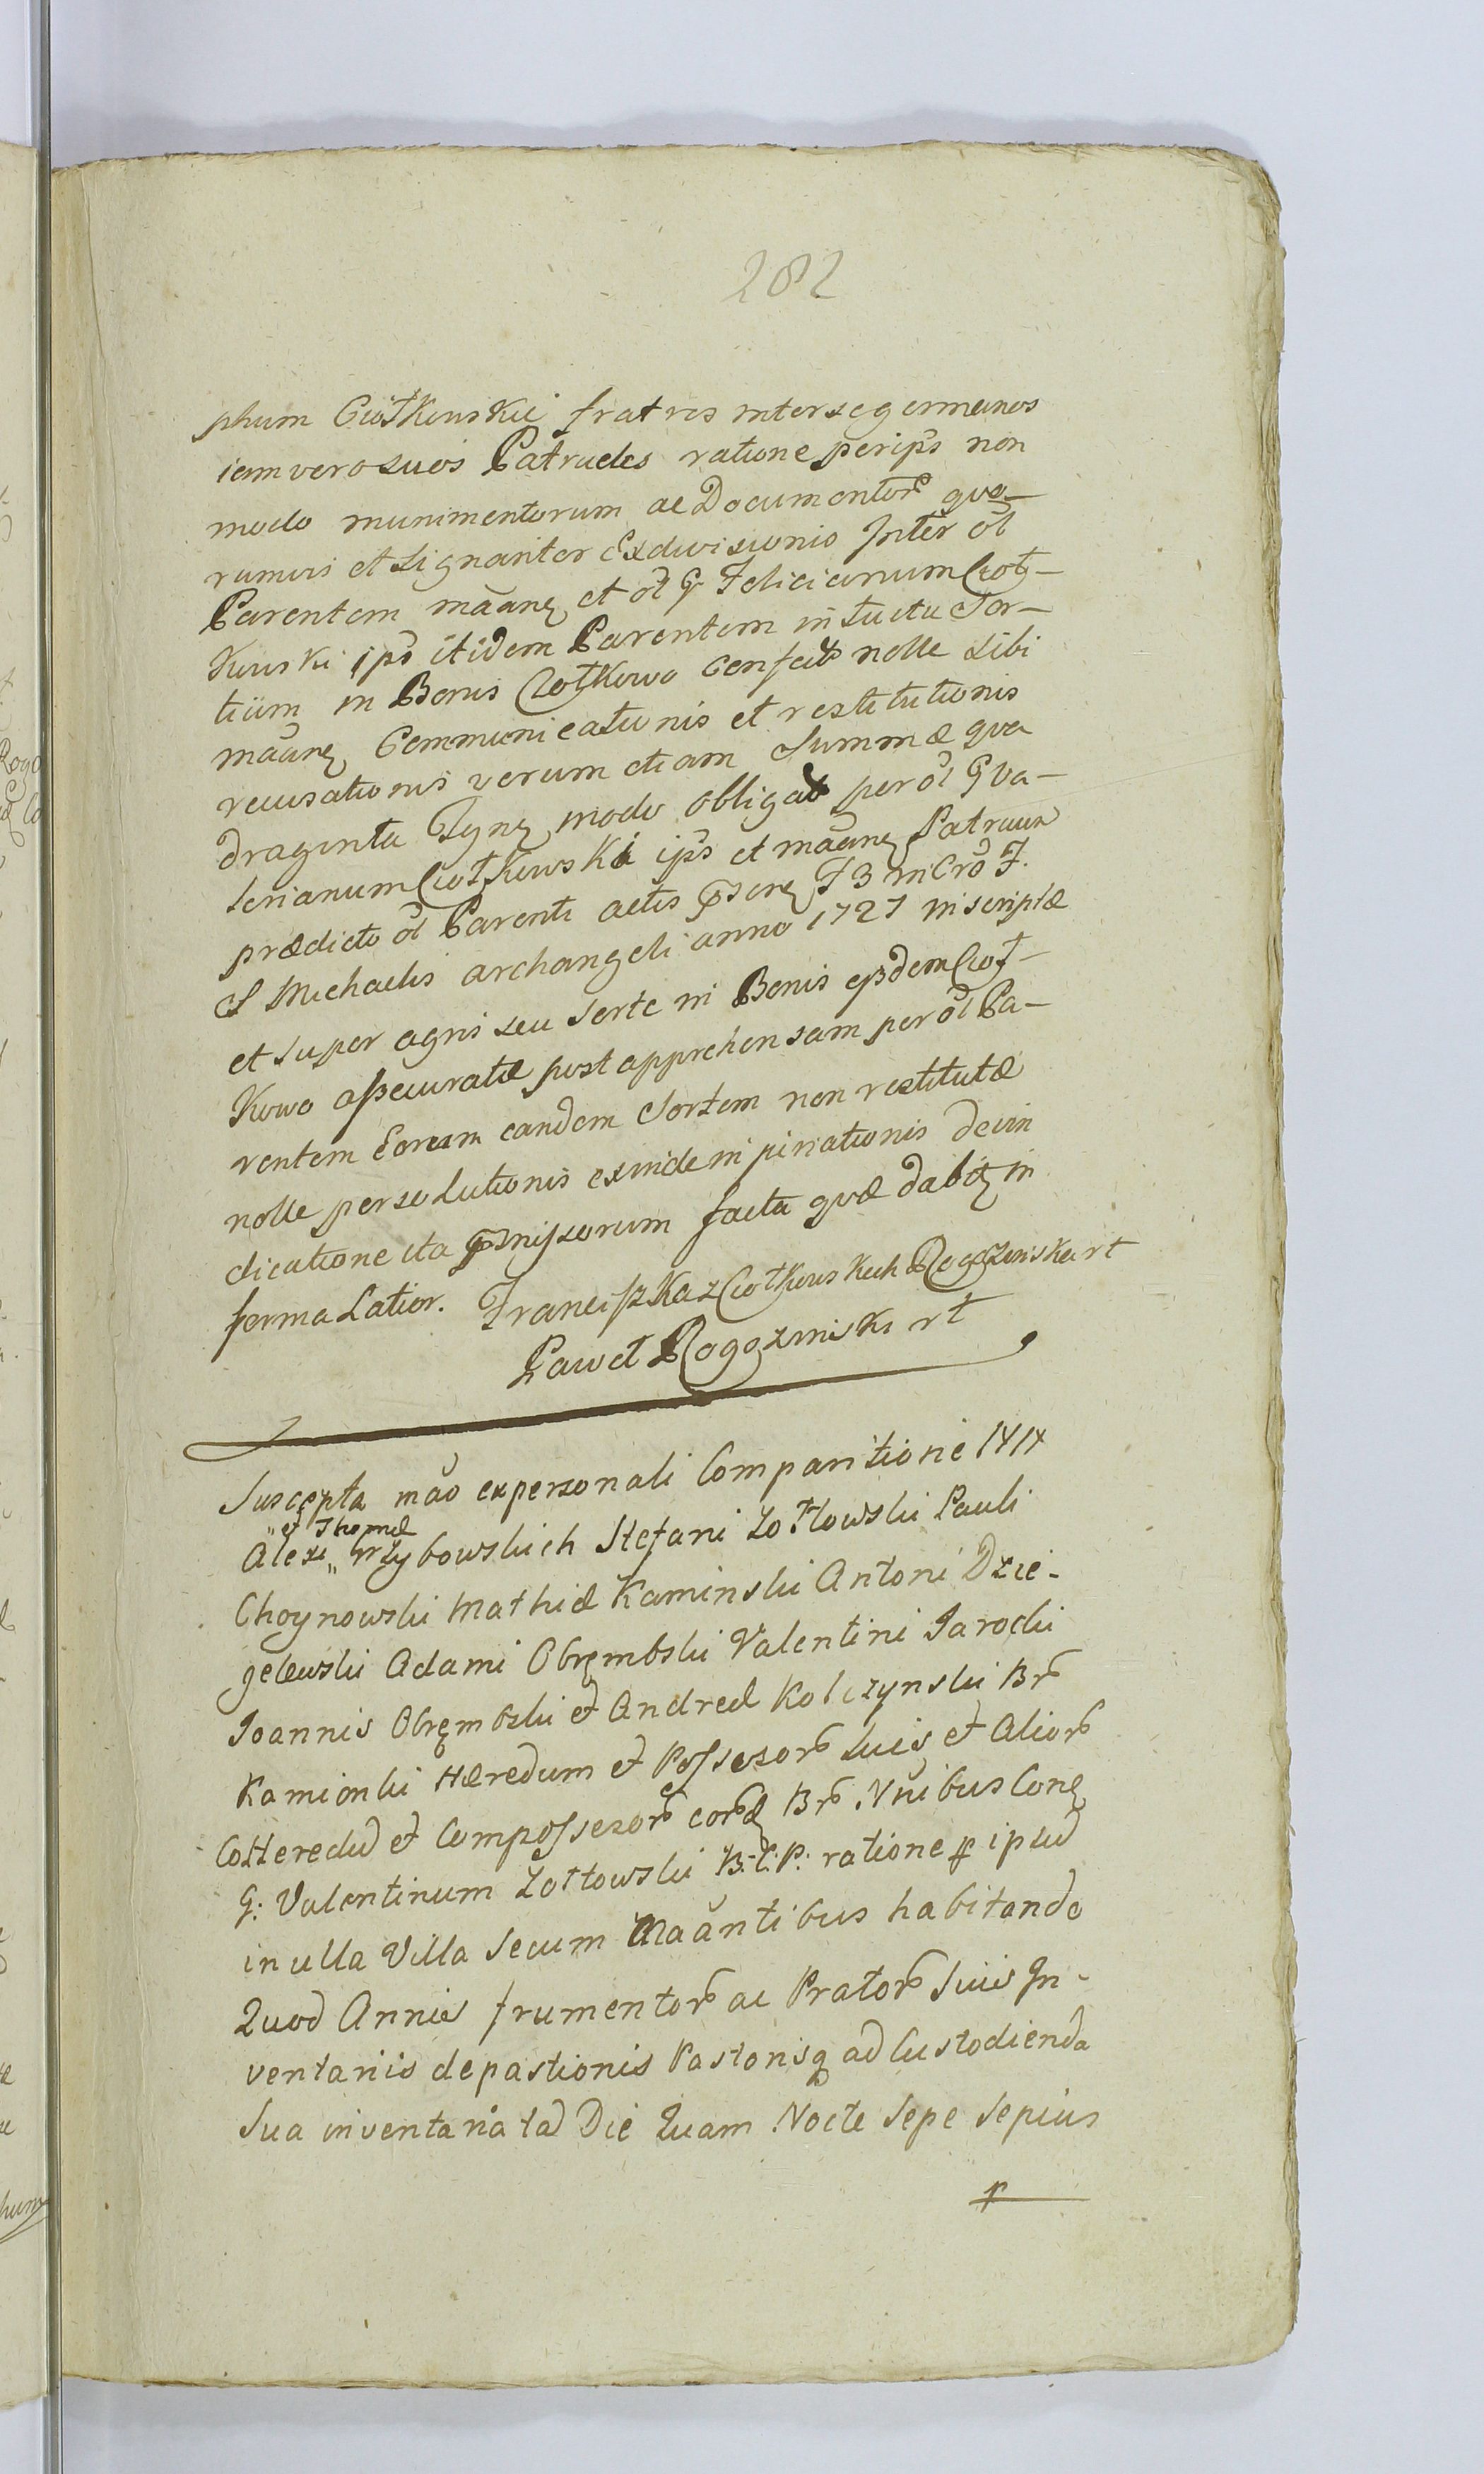 282
phum Ciotkowskie fratres inter se germanos
iam vero suos Patrueles ratione per ips̃ non
modo munimentorum ac Documentor̃ quo-
rumvis et signanter Exdivisionis Inter ol̃
Parentem mãanę et ol̃ G Felicianum Ciot-
kowski ips̃ itidem Parentem intuitu Sor-
tium in Bonis Ciotkowo confect̃ nolle sibi
mãanę Communicationis et restitutionis
recusationis verum etiam Summæ qua
draginta Tynę modo obligat̃ per ol̃ G Va-
lerianum Ciotkowski ips̃ et mãanę Patruum
prædicto ol̃ Parenti actis
S Michaelis archangeli anno 1727 inscriptæ
et super agris seu Sorte in Bonis ejsdem Ciot-
kowo assecuratæ post apprehensam per ol̃ Pa-
rentem Eorum eandem Sortem non restitutæ
nolle persolutionis exinde inpiriationis devin
dicatione ita præmissorum facta quæ dabitę in
forma Latior. Franciszka z Ciotkowskich Rogozinska rt
Paweł Rogozinski rt
Suscepta mão ex personali Comparitione
„et Thomæ
Alexi „ Wzybowskich Stefani Zołtowski Pauli
Choynowski Mathiæ Kaminski Antoni Dzie-
gelewski Adami Obrembski Valentini Jarocki
Joannis Obrembski et Andreæ Kolczynski Br̃
Kamionki Hæredum et Possessor̃ suis et Alior̃
Cohæredũ et Compossessor̃ eor̃d Br̃ Nñibus Conę
G: Valentinum Zołtowski B: C: P: ratione p ipsũ
in ulla Villa secum Mãantibus habitando
Quod Annis frumentor̃ ac Prator̃ suis In-
ventariis depastionis Pastorisq ad Custodienda
sua inventaria tã Die Quam Nocte sepe sepius